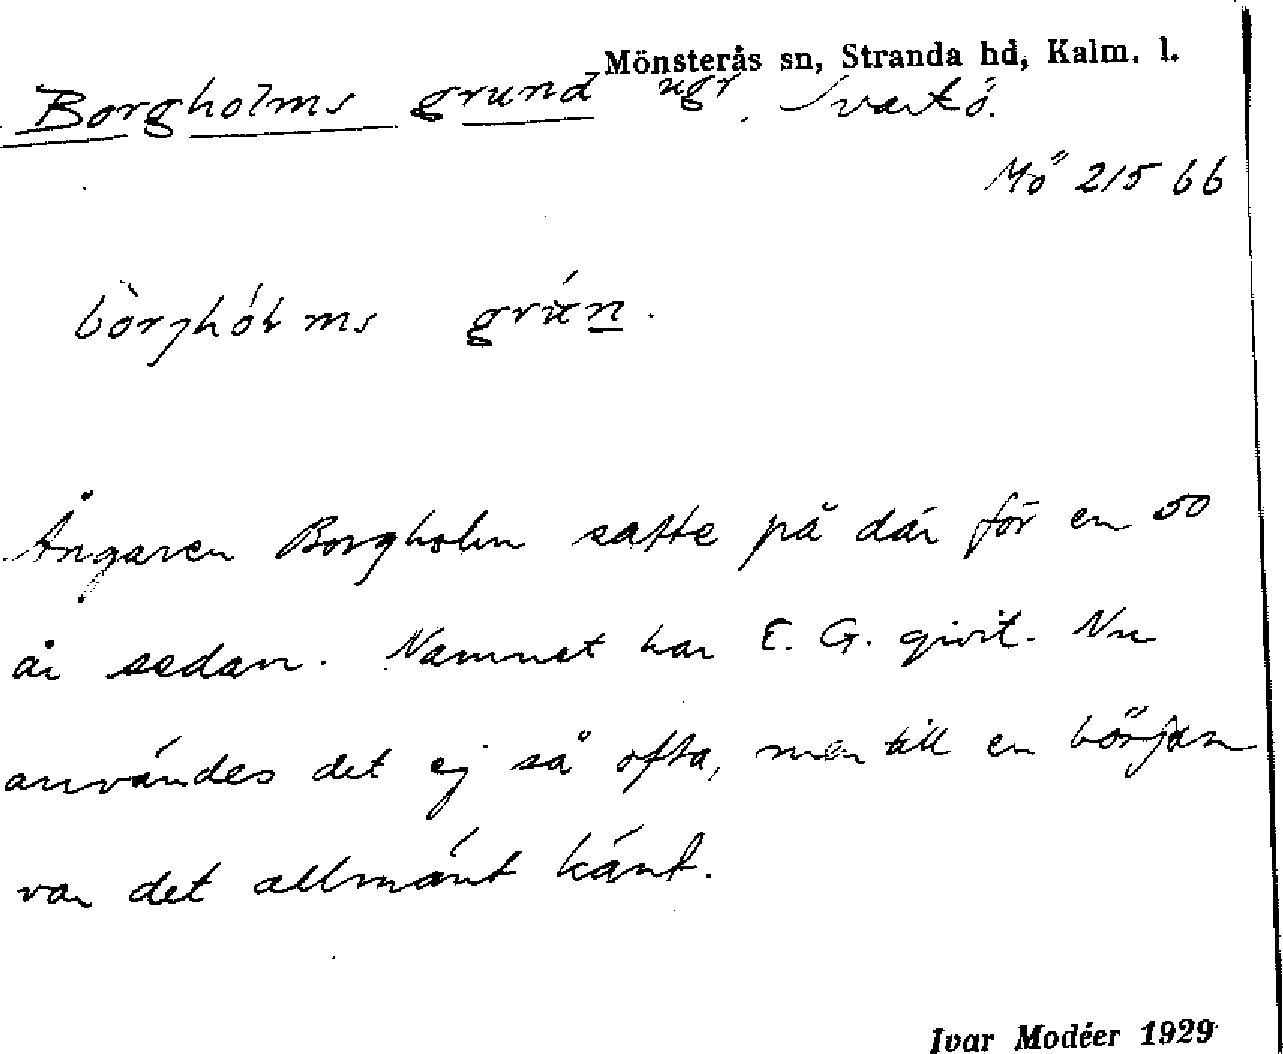 Mönsterås sn, Stranda hd, Kalm. l.
Borgholms grund ugr. Svartö.
Mö 215 66
bòrjhólms grún.
Ångaren Borgholm satte på där för en 50
år sedan. Namnet har E. G. givit. Nu
användes det ej så ofta, men till en början
var det allmänt känt.
Ivar Modéer 1929